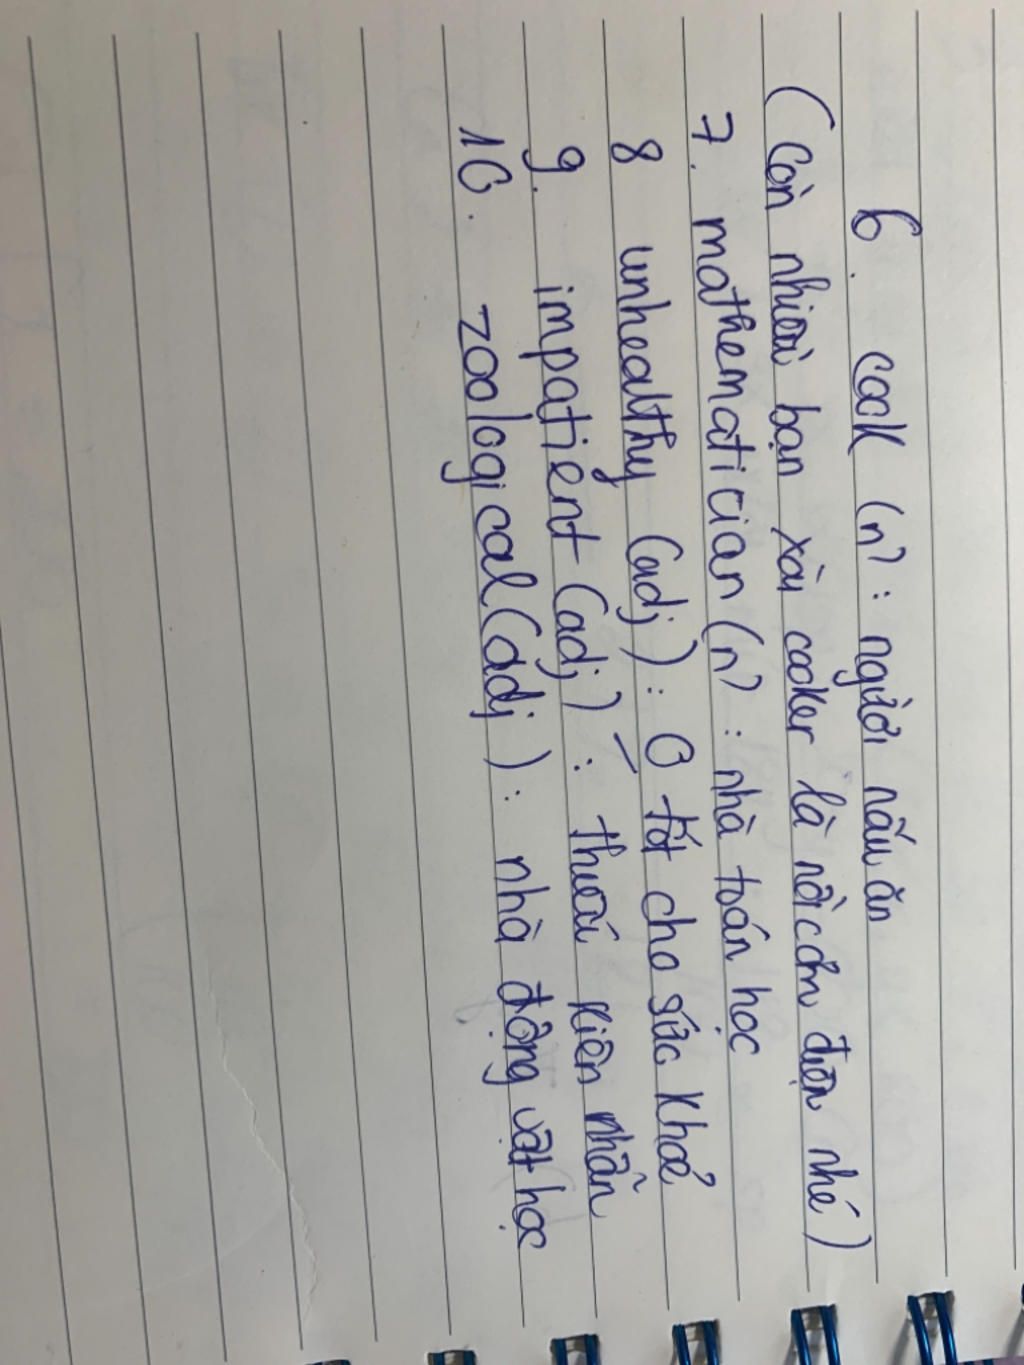 6. cook (n) : người nấu ăn
(Còn nhiều bạn xài cooker là nồi cơm điện nhé)
7. mathematician (n) : nhà toán học
8 unhealthy (adj) : O tốt cho sức khoẻ
9. impatient (adj) : thiếu kiên nhẫn
10. zoological (adj) : nhà động vật học